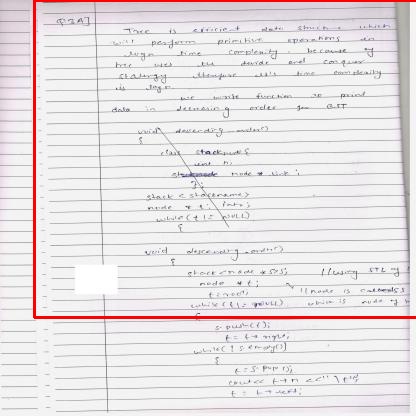 Q3A]
Tree is efficient data structure which
will perform primitive operations in
logn time complexity, because of
tree uses the divide and conquer
stratergy therefore it's time complexity
is logn
we write function to print
data in decreasing order for BST
void descending_order()
{
class stack
int n;
node * link;
};
stack < >
node * t;
while (t != NULL)
{
void descending_order()
{
stack<node *>s; //using STL of
node * t; //node is
t=root; which is node of
while(t != NULL)
{
s.push(t);
t = t→right;
while(!s.empty())
{
t = s.pop();
cout<< t→n <<"\t";
t = t→left;